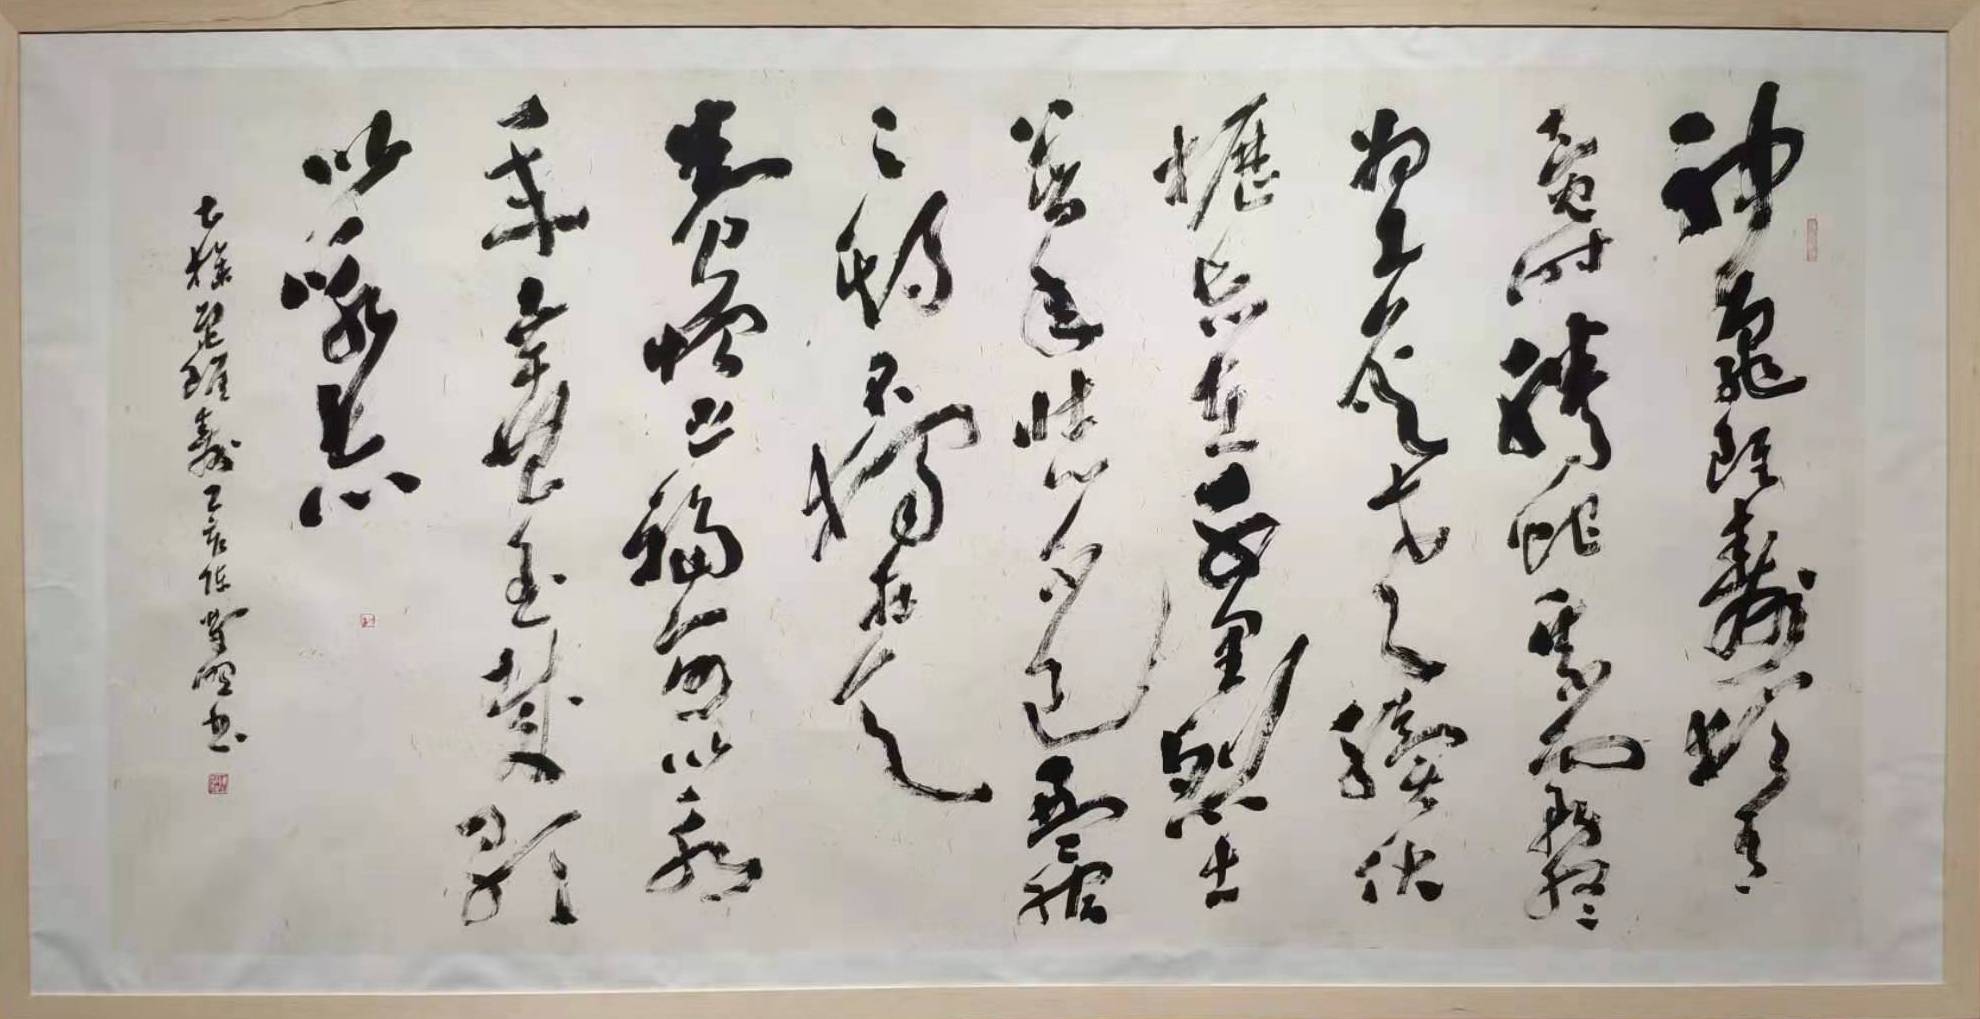 神龜雖壽猶有
竟時騰蛇乘霧終
為土灰老驥伏
櫪志在千里烈士
暮年壯心不已盈縮
之期不獨在天
養怡之福可以永
年幸甚至哉歌
以詠志
操龜雖壽己亥陳書